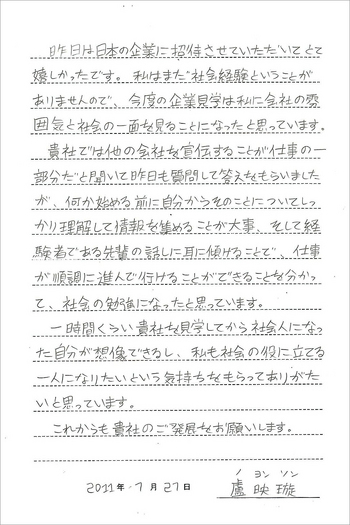 昨日は日本の企業に招待させていただいてとて
嬉しかったです。私はまだ社会経験ということが
ありませんので、今度の企業見学は私に会社の雰
囲気と社会の一面を見ることになったと思っています。
貴社では他の会社を宣伝することが仕事の一
部分だと聞いて昨日も質問して答えをもらいました
が、何か始める前に自分からそのことについてしっ
かり理解して情報を集めることが大事、そして経
験者である先輩の話しに耳に傾けることで、仕事
が順調に進んで行けることができることを分かっ
て、社会の勉強になったと思っています。
一時間くらい貴社を見学してから社会人になっ
た自分が想像できるし、私も社会の役に立てる
一人になりたいという気持ちをもらってありがた
いと思っています。
これからも貴社のご発展をお願いします。
2011年 7月27日
ノ ヨン ソン
盧 映 璇